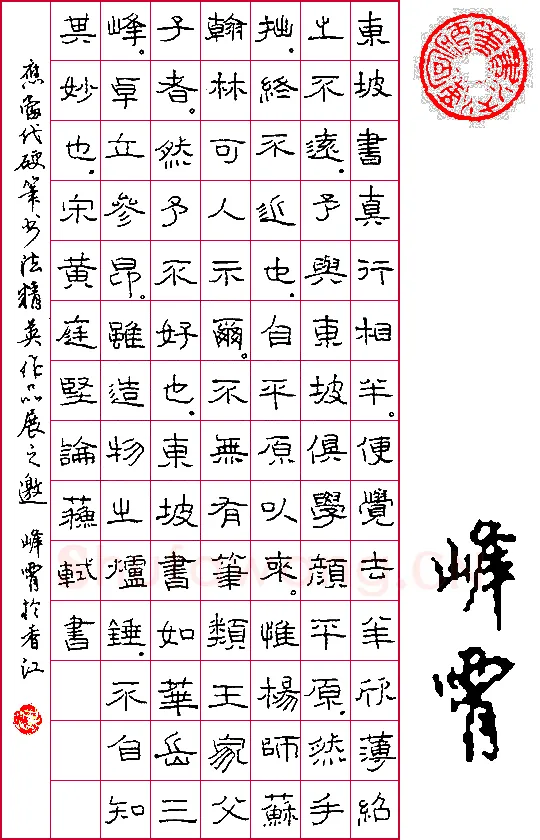 東坡書真行相半。便覺去羊欣薄紹
之不遠.予與東坡俱學顏平原.然手
拙.終不近也.自平原以來。惟楊師蘇
翰林可人示爾。不無有筆類王家父
子者。然予不好也.東坡書如華岳三
峰。卓立參昂。雖造物之爐錘.不自知
其妙也.宋黃庭堅論蘇軾書
應當代硬筆书法精英作品展之邀 峰霄於香江
峰霄